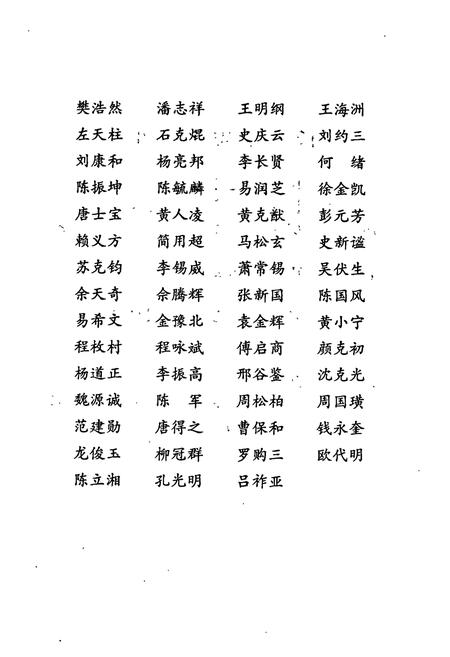 樊浩然 潘志祥 王明纲 王海洲
左天柱 石克焜 史庆云 刘约三
刘康和 杨亮邦 李长贤 何绪
陈振坤 陈毓麟 易润芝 徐金凯
唐士宝 黄人凌 黄克猷 彭元芳
赖义方 简用超 马松玄 史新谧
苏克钧 李锡威 萧常锡 吴伏生
余天奇 佘腾辉 张新国 陈国风
易希文 金豫北 袁金辉 黄小宁
程枚村 程咏斌 傅启商 颜克初
杨道正 李振高 邢谷鉴 沈克光
魏源诚 陈军 周松柏 周国璜
范建勋 唐得之 曹保和 钱永奎
龙俊玉 柳冠群 罗购三 欧代明
陈立湘 孔光明 吕祚亚